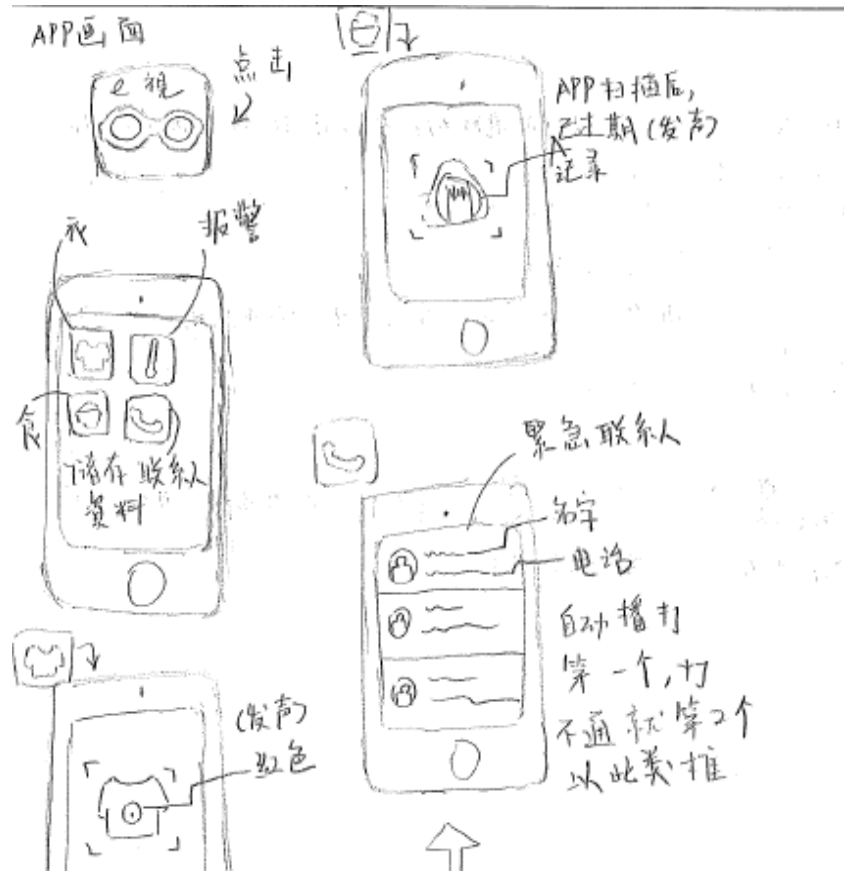 APP画面
e 視
点击
衣
报警
食
储存联系人
資料
(发声)
红色
APP扫描后,
已过期(发声)
记录
緊急联系人
名字
电话
自动播打
第一个,打
不通就第2个
以此类推